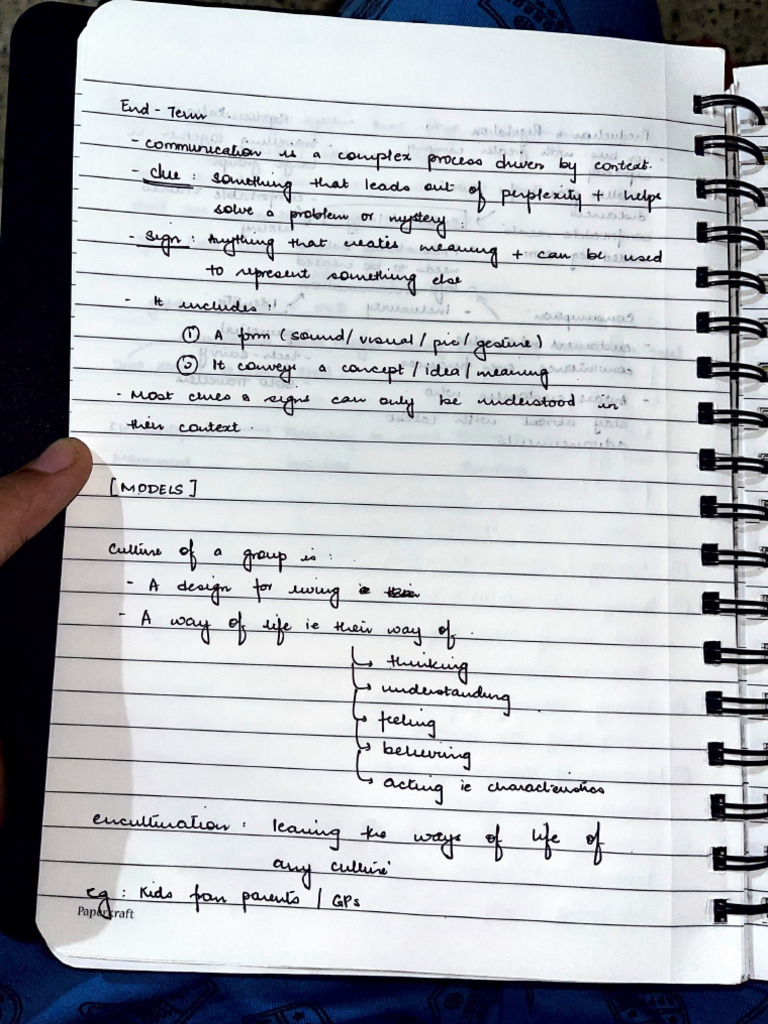 End - Term
- communication is a complex process driven by context.
- clue : something that leads out of perplexity + helps
solve a problem or mystery.
- sign : Anything that creates meaning + can be used
to represent something else
- It includes :
① A form (sound/visual/pic/gesture)
② It conveys a concept / idea / meaning
- Most clues & signs can only be understood in
their context.
[MODELS]
culture of a group is :
- A design for living
- A way of life ie their way of
↳ thinking
↳ understanding
↳ feeling
↳ believing
↳ acting ie characteristics
enculturation : learning the ways of life of
any culture
eg : Kids from parents / GPs
Papercraft